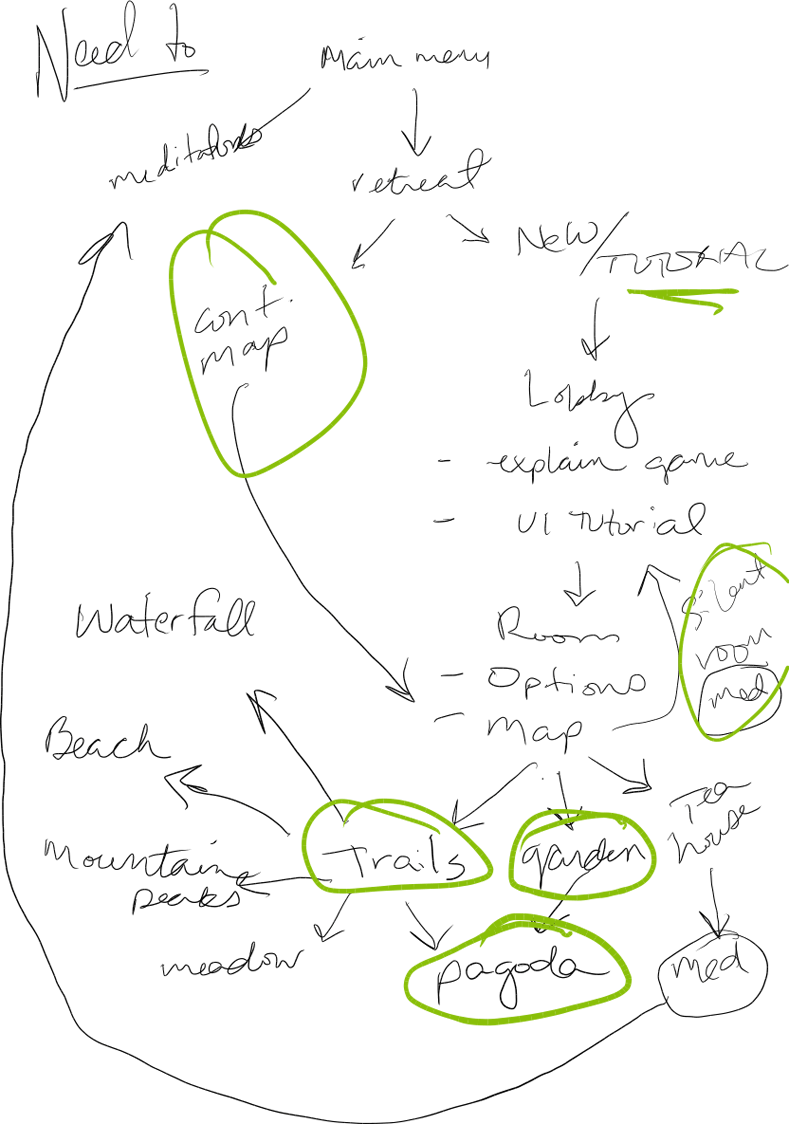 Need to
Main menu
meditations
retreat
New/TUTORIAL
cont.
map
Lobby
- explain game
- UI Tutorial
Silent
room
med
Waterfall
Room
- Options
- Map
Beach
Tea
house
Trails
garden
Mountain
peaks
meadow
pagoda
med